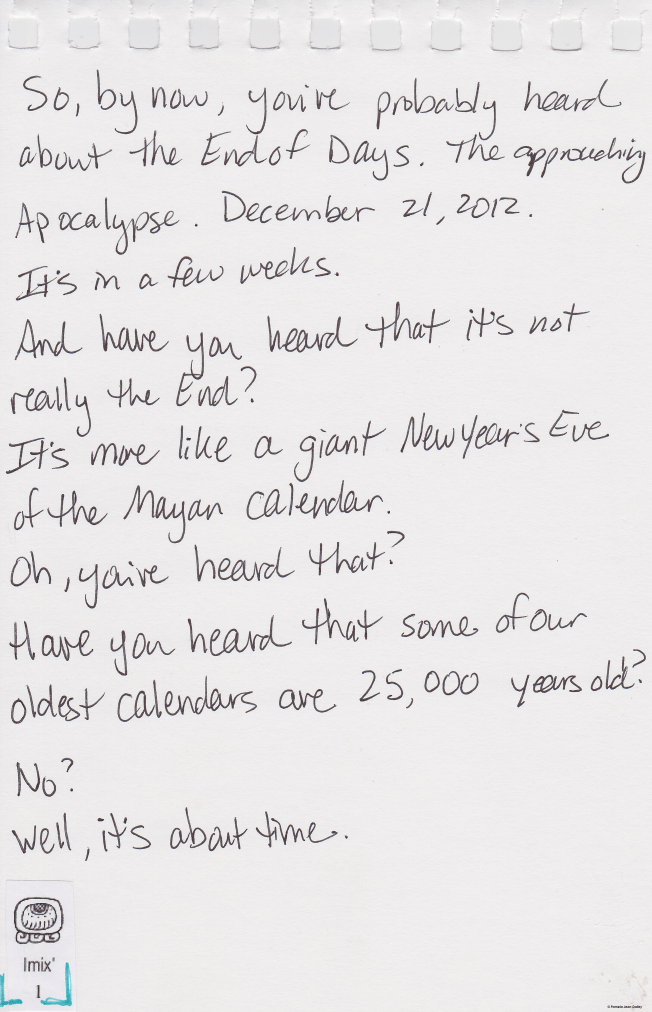 So, by now, you've probably heard
about the End of Days. The approaching
Apocalypse. December 21, 2012.
It's in a few weeks.
And have you heard that it's not
really the End?
It's more like a giant New Year's Eve
of the Mayan calendar.
Oh, you've heard that?
Have you heard that some of our
oldest calendars are 25,000 years old?
No?
Well, it's about time.
Imix'
1